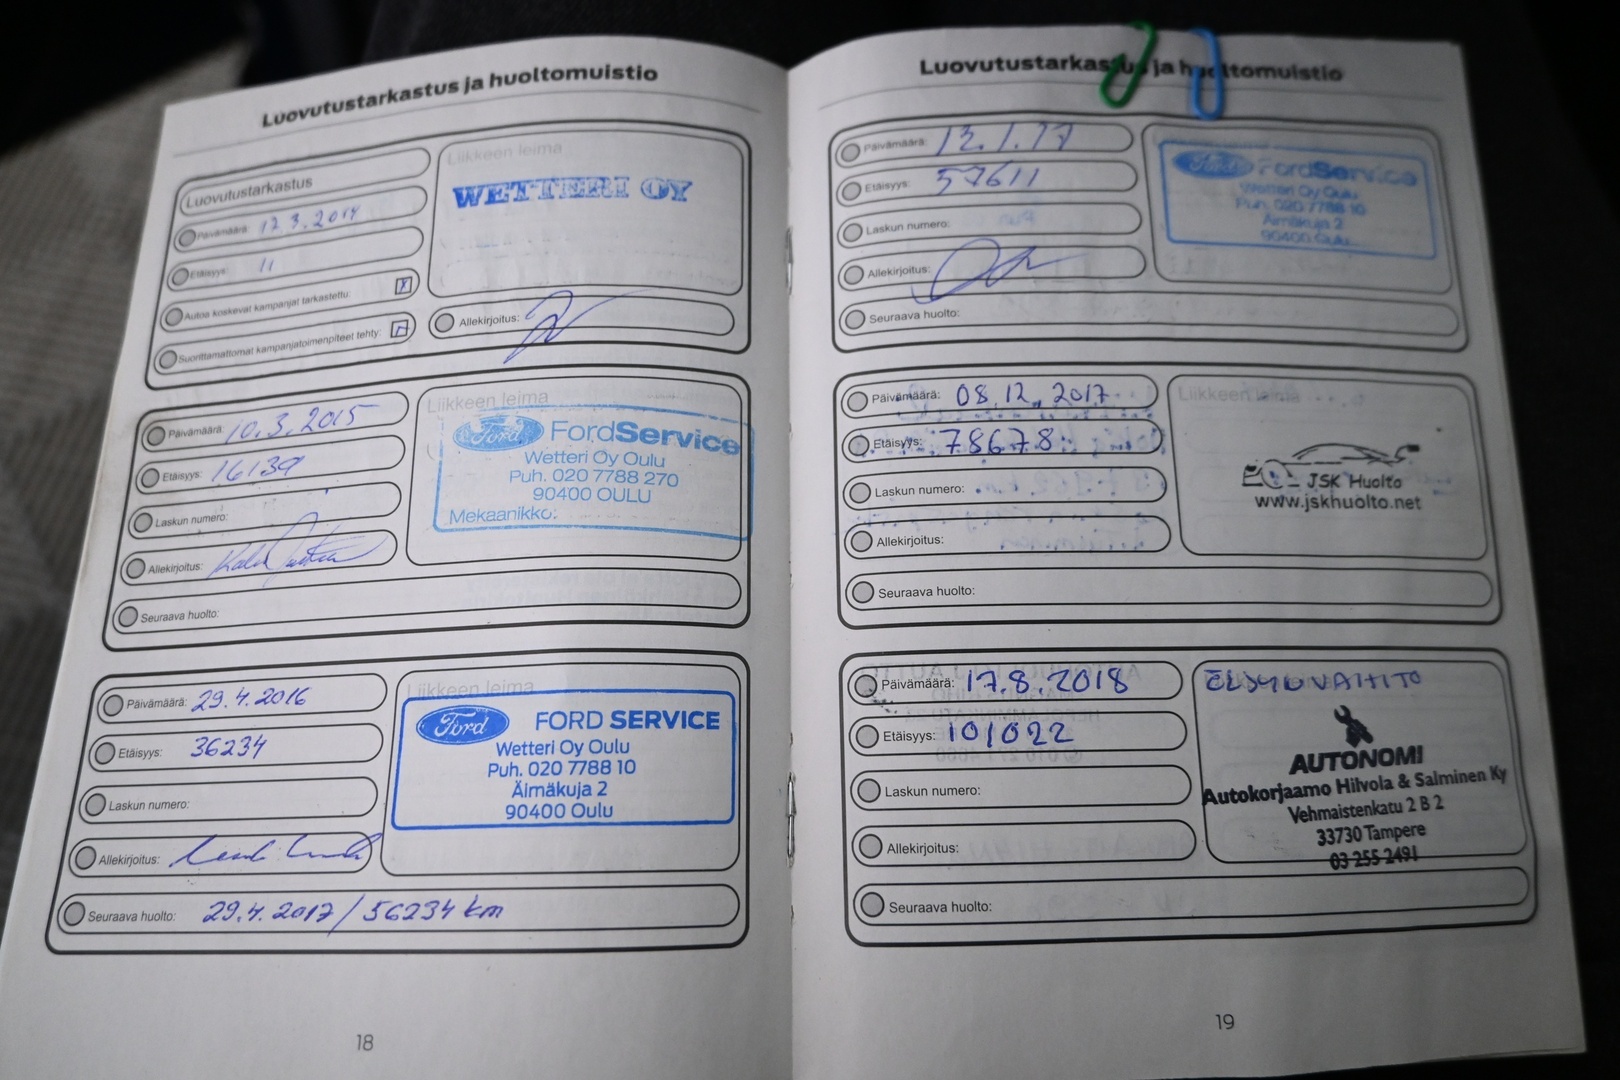 Luovutustarkastus ja huoltomuistio
Luovutustarkastus
Päivämäärä: 12.3.2014
Etäisyys: 11
Autoa koskevat kampanjat tarkastettu:
Suorittamattomat kampanjatoimenpiteet tehty:
Liikkeen leima
WETTERI OY
Allekirjoitus:
Päivämäärä: 10.3.2015
Etäisyys: 16139
Laskun numero:
Allekirjoitus:
Seuraava huolto:
Liikkeen leima
Ford FordService
Wetteri Oy Oulu
Puh. 020 7788 270
90400 OULU
Mekaanikko:
Päivämäärä: 29.4.2016
Etäisyys: 36234
Laskun numero:
Allekirjoitus:
Seuraava huolto: 29.4.2017 / 56234 km
Liikkeen leima
Ford FORD SERVICE
Wetteri Oy Oulu
Puh. 020 7788 10
Äimäkuja 2
90400 Oulu
18
Luovutustarkastus ja huoltomuistio
Päivämäärä: 12.1.17
Etäisyys: 57611
Laskun numero:
Allekirjoitus:
Seuraava huolto:
Ford FordService
Wetteri Oy Oulu
Puh. 020 7788 10
Äimäkuja 2
90400 Oulu
Päivämäärä: 08.12.2017
Etäisyys: 78678
Laskun numero:
Allekirjoitus:
Seuraava huolto:
Liikkeen leima
JSK Huolto
www.jskhuolto.net
Päivämäärä: 17.8.2018
Etäisyys: 101022
Laskun numero:
Allekirjoitus:
Seuraava huolto:
AUTONOMI
Autokorjaamo Hilvola & Salminen Ky
Vehmaistenkatu 2 B 2
33730 Tampere
03 255 2491
19